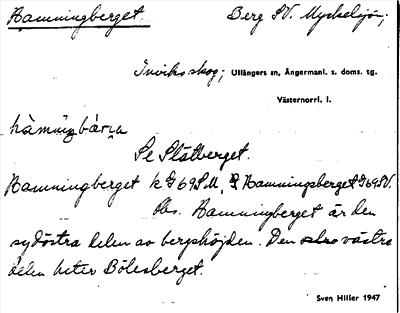 Hamningberget. Berg SV. Myckelsjön;
Inviks skog; Ullångers sn, Ångermanl. s. doms. tg.
Västernorrl. l.
hàmnìŋbárja
Se Slåtberget.
Hamningberget k G69SM, Hamningsberget G69SV.
Obs. Hamningberget är den
sydöstra delen av bergshöjden. Den västra
delen heter Bölesberget.
Sven Hiller 1947